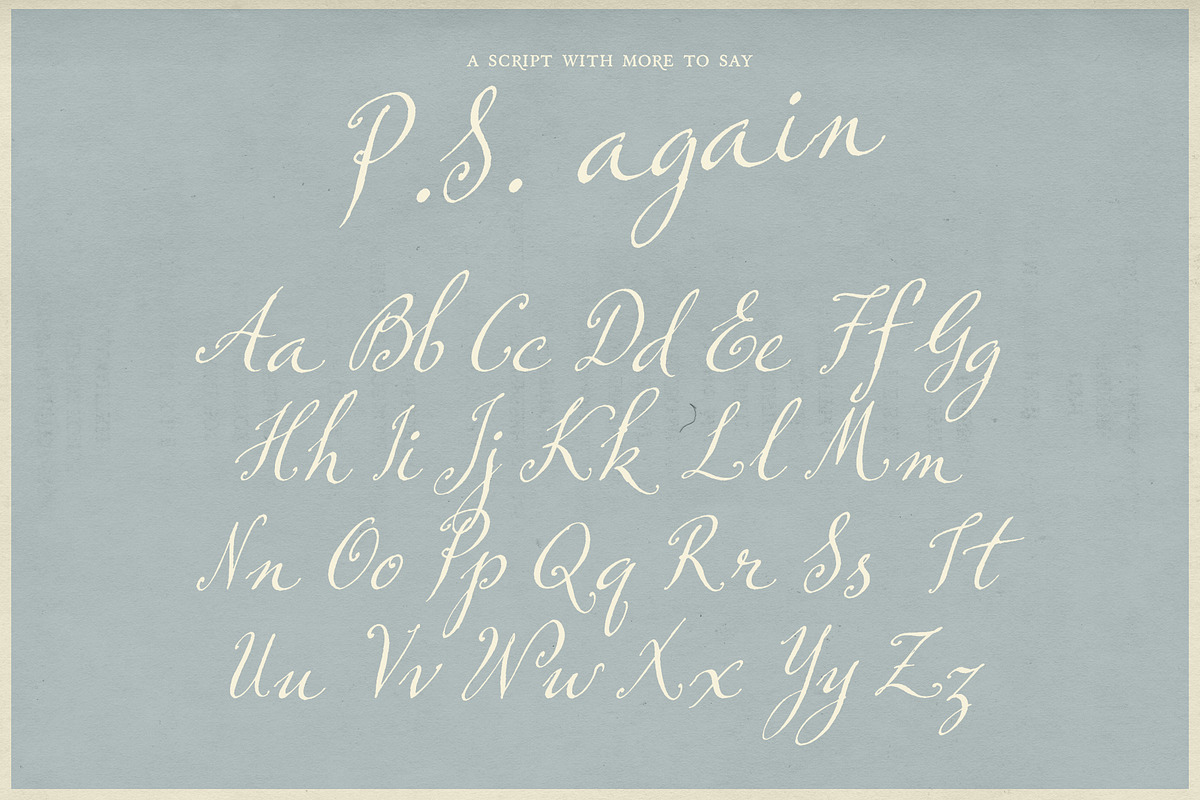 A SCRIPT WITH MORE TO SAY
P.S. again
Aa Bb Cc Dd Ee Ff Gg
Hh Ii Jj Kk Ll Mm
Nn Oo Pp Qq Rr Ss Tt
Uu Vv Ww Xx Yy Zz